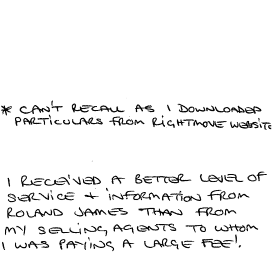 * CAN'T RECALL AS I DOWNLOADED
PARTICULARS FROM RIGHTMOVE WEBSITE
I RECEIVED A BETTER LEVEL OF
SERVICE + INFORMATION FROM
ROLAND JAMES THAN FROM
MY SELLING AGENTS TO WHOM
I WAS PAYING A LARGE FEE!.